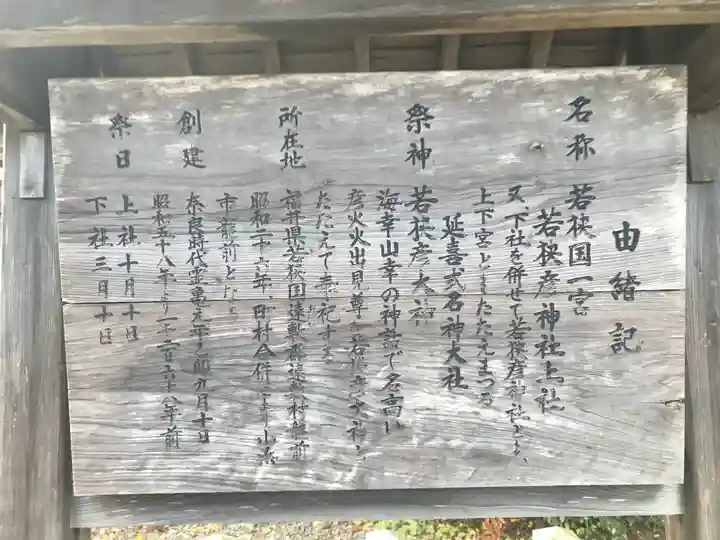 由緒記
名称 若狭国一宮
若狭彦神社上社
又、下社を併せて若狭彦神社とも、
上下宮ともたたえまつる
延喜式名神大社
祭神 若狭彦大神
海幸山幸の神話で名高い
彦火火出見尊を若狭彦大神と
たたえて奉祀する
所在地 福井県若狭国遠敷郡遠敷村龍前
昭和二十六年、町村合併により小浜
市龍前となる
創建 奈良時代霊亀元年乙卯九月十日
昭和五十八年より一二六八年前
祭日 上社十月十日
下社三月十日